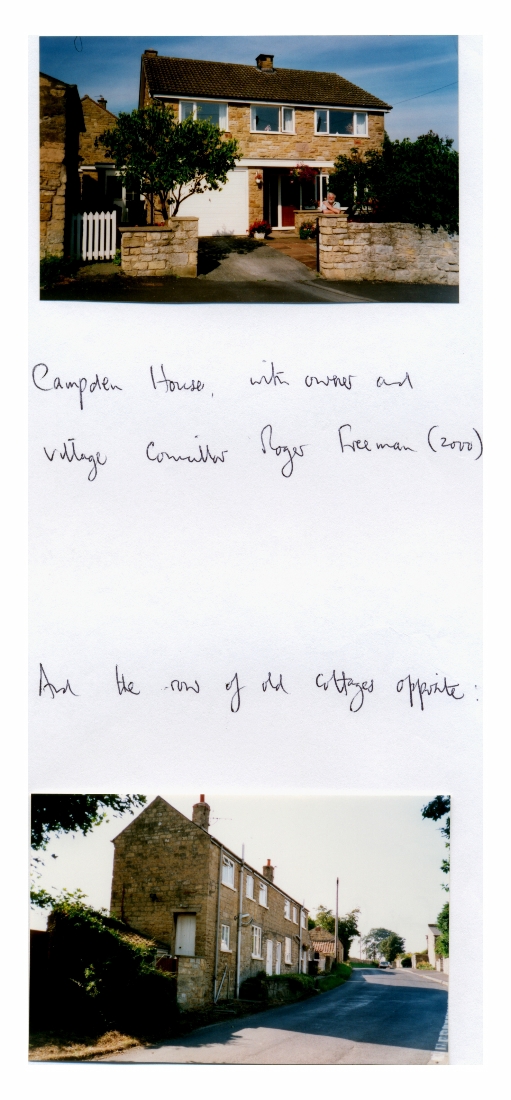 Campden House, with owner and
village Councillor Roger Freeman (2000)
And the row of old cottages opposite: